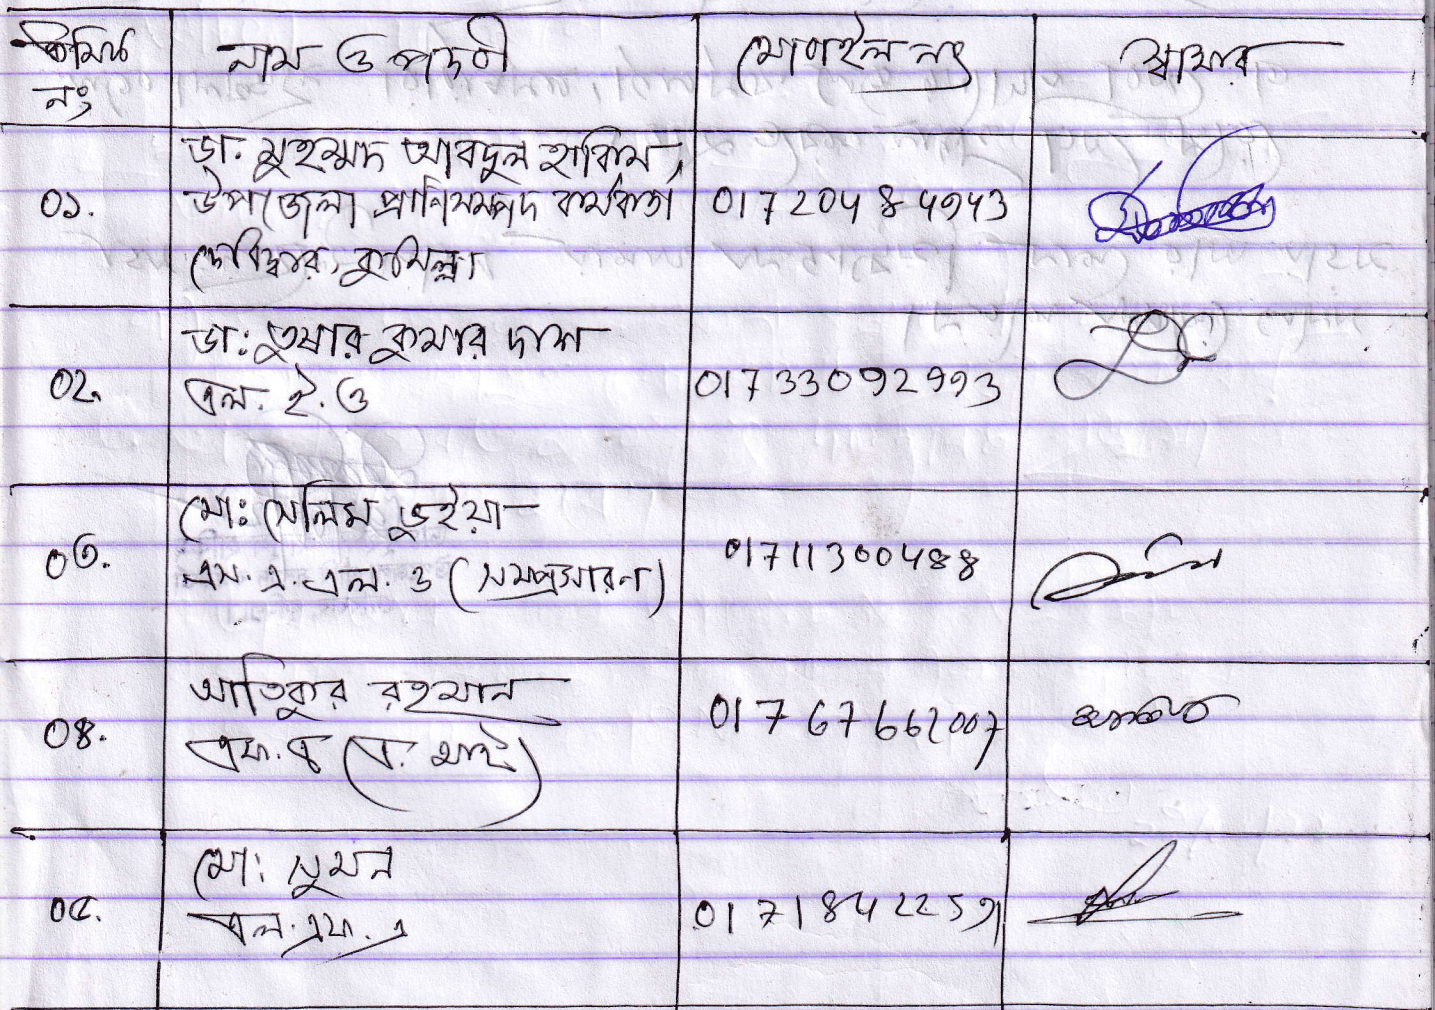 ক্রমিক নং নাম ও পদবী মোবাইল নং স্বাক্ষর
০১. ডা. মুহম্মদ আবদুল হাকিম, উপজেলা প্রাণিসম্পদ কর্মকর্তা দেবিদ্বার, কুমিল্লা 01720484943
০২. ডা: তুষার কুমার দাশ এল. ই. ও 01733092993
০৩. মো: সেলিম ভুইয়া এস. এ. এল. ও (সম্প্রসারণ) 01711300488
০৪. আতিকুর রহমান এফ. এ (এ. আই) 01767662007
০৫. মো: সুমন এল. এফ. এ 01718422591